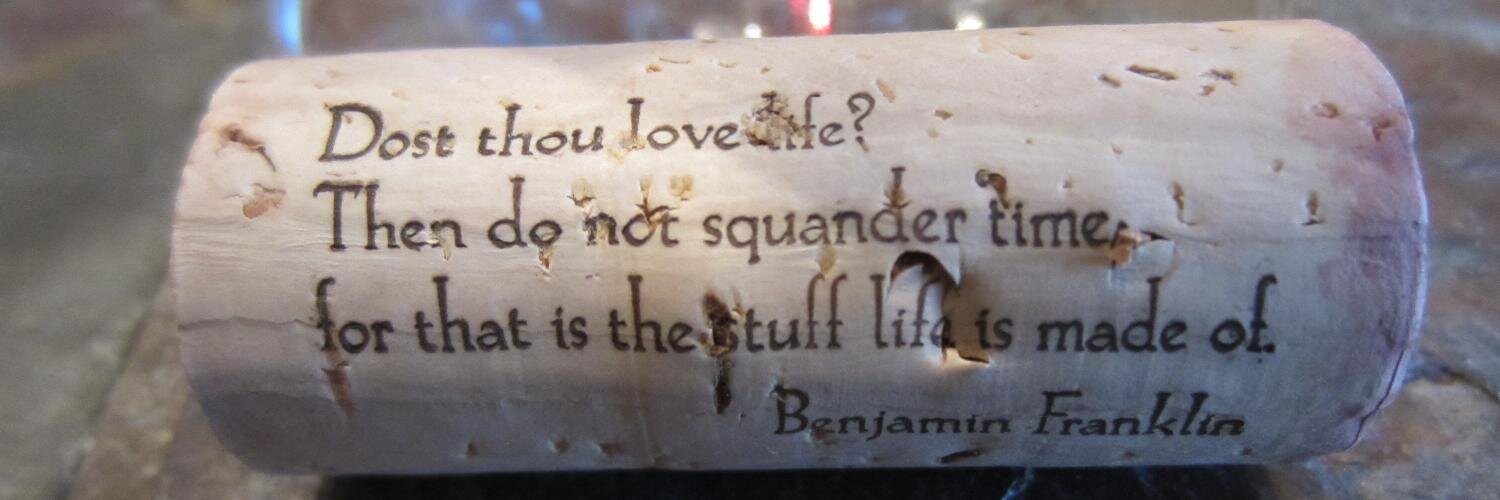 Dost thou love life?
Then do not squander time,
for that is the stuff life is made of.
Benjamin Franklin